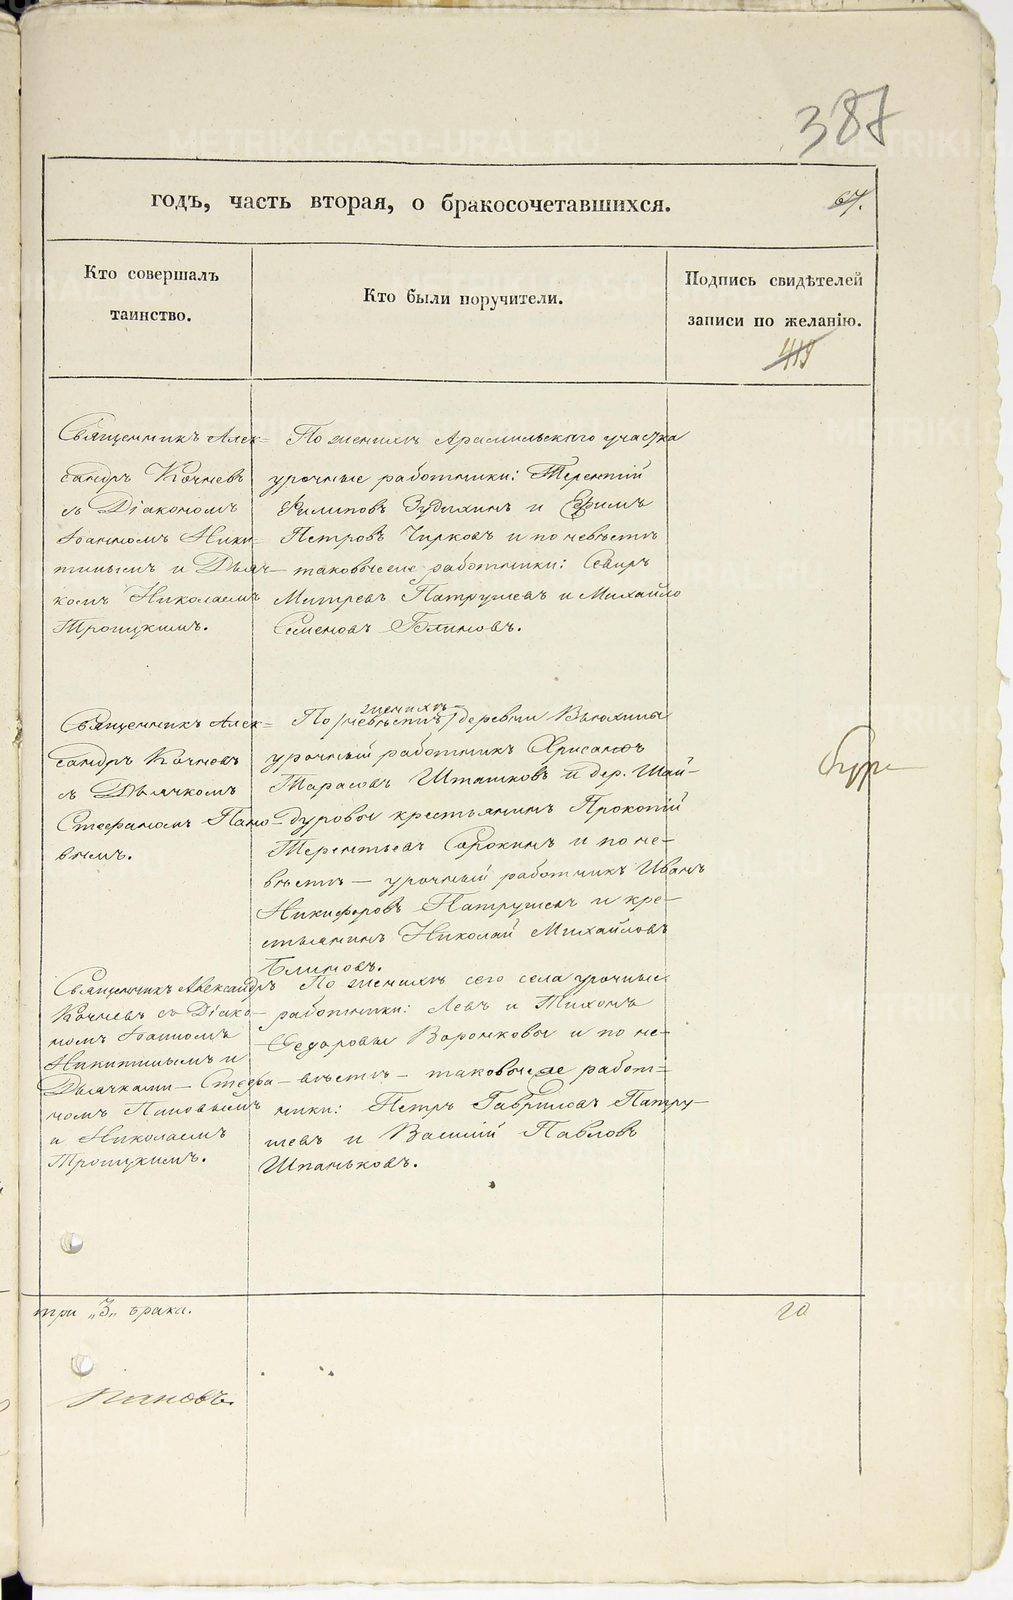 387
годъ, часть вторая, о бракосочетавшихся.
67.
Кто совершалъ
таинство.
Кто были поручители.
Подпись свидѣтелей
записи по желанію.
419
Священникъ Алек-
сандръ Кочневъ
съ Діакономъ
Іоанномъ Ники-
тинымъ и Дьяч-
комъ Николаемъ
Троицкимъ.
По женихѣ Арамильскаго участка
урочные работники: Терентій
Филиповъ Зудихинъ и Ефимъ
Петровъ Чирковъ и по невѣстѣ
таковые же работники: Севиръ
Митревъ Патрушевъ и Михайло
Семеновъ Блиновъ.
Священникъ Алек-
сандръ Кочневъ
съ Дьячкомъ
Стефаномъ Пано-
вымъ.
женихѣ
По (невѣстѣ) деревни Вьюхины
урочный работникъ Хрисанѳъ
Тарасовъ Шташковъ и дер. Шай-
дуровы крестьянинъ Прокопій
Терентьевъ Сорокинъ и по не-
вѣстѣ — урочный работникъ Иванъ
Никифоровъ Патрушевъ и кре-
стьянинъ Николай Михайловъ
Блиновъ.
Священникъ Александръ
Кочневъ съ Діако-
номъ Іоанномъ
Никитинымъ и
Дьячками - Стефа-
номъ Пановымъ
и Николаемъ
Троицкимъ.
По женихѣ сего села урочные
работники: Левъ и Тихонъ
Ѳедоровы Воронковы и по не-
вѣстѣ - таковые же работ-
ники: Петръ Гавриловъ Патру-
шевъ и Василій Павловъ
Шпаньковъ.
три „3„ брака.
20
Пановъ.
METRIKI.GASO-URAL.RU